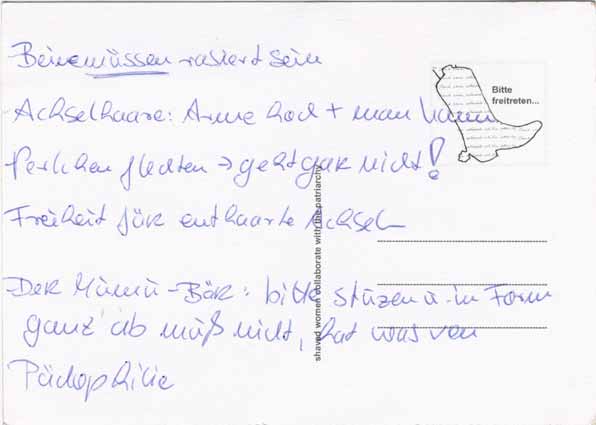 Beine müssen rasiert sein
Bitte
freitreten...
Achselhaare: Arme hoch + man kann
Perlchen flechten → geht gar nicht!
Freiheit für enthaarte Achsel
Der Mumu-Bär: bitte stuzen u. in Form
ganz ab muß nicht, hat was von
Pädophilie
shaved women collaborate with the patriarchy